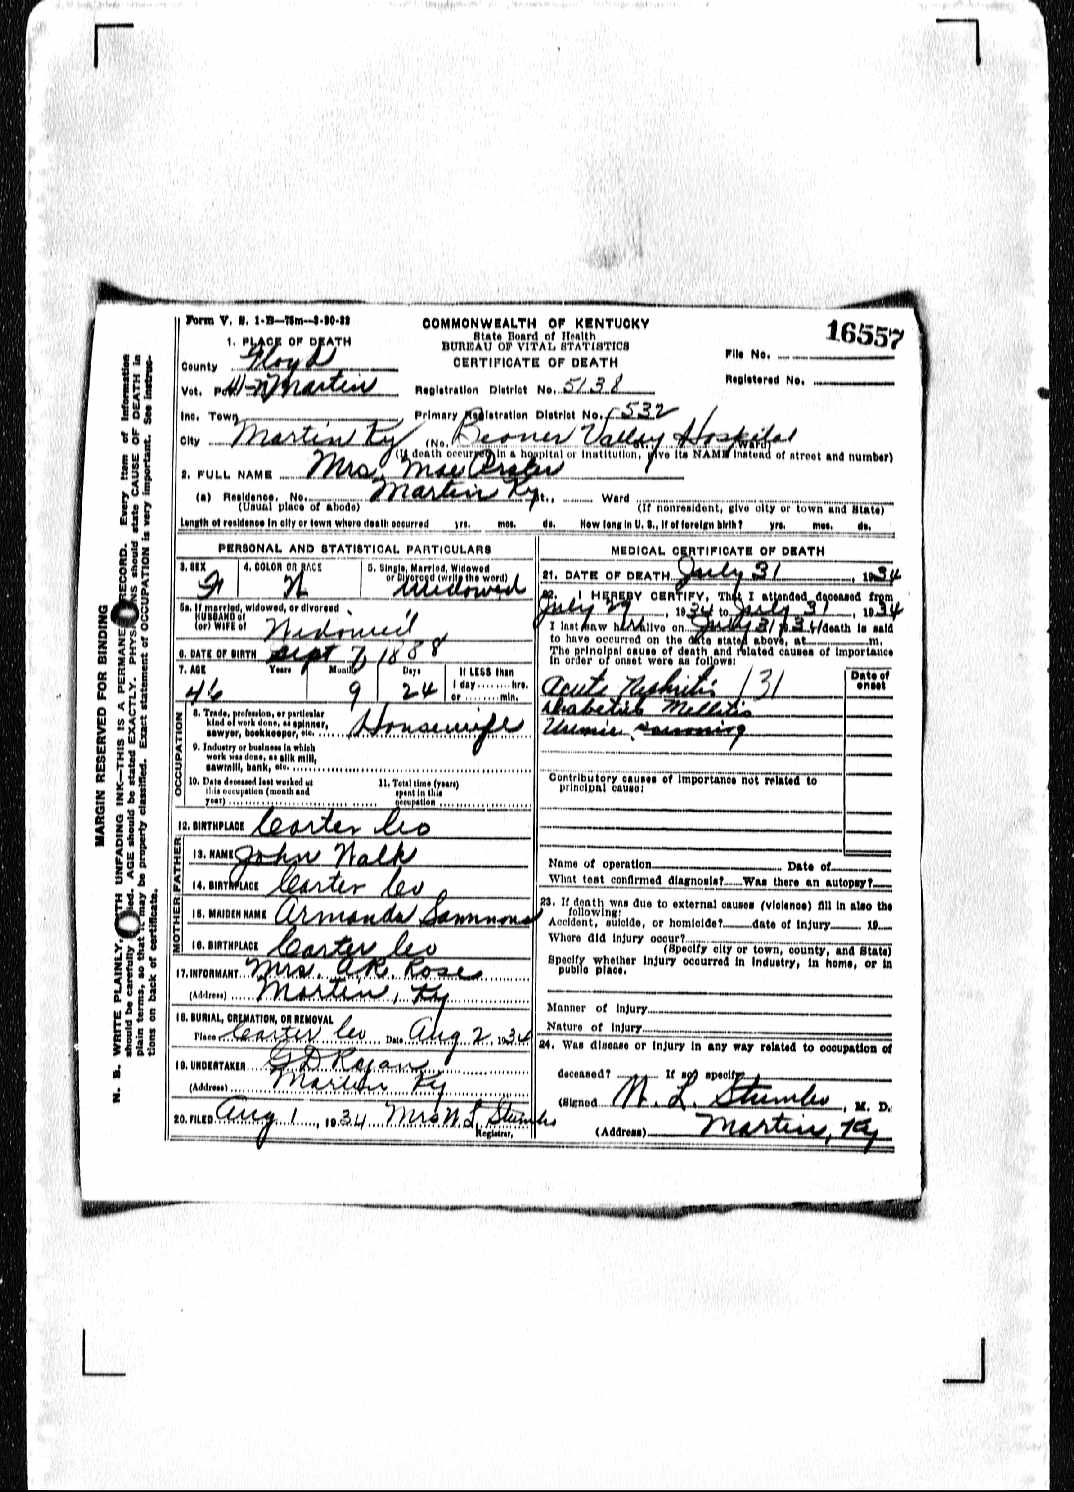 Form V. S. 1-B—75m—3-30-33
COMMONWEALTH OF KENTUCKY
State Board of Health
BUREAU OF VITAL STATISTICS
CERTIFICATE OF DEATH
16557
File No.
Registered No.
1. PLACE OF DEATH
County Floyd
Vot. Martin
Registration District No. 5138
Inc. Town
Primary Registration District No. 532
City Martin Ky (No. Beaver Valley Hospital Ward)
(If death occurred in a hospital or institution, give its NAME instead of street and number)
2. FULL NAME Mrs. Mae
(a) Residence. No. Martin Ky St., Ward
(Usual place of abode) (If nonresident, give city or town and State)
Length of residence in city or town where death occurred yrs. mos. ds. How long in U. S., if of foreign birth? yrs. mos. ds.
PERSONAL AND STATISTICAL PARTICULARS
3. SEX F
4. COLOR OR RACE W
5. Single, Married, Widowed or Divorced (write the word) Widowed
5a. If married, widowed, or divorced
HUSBAND of
(or) WIFE of Widowed
6. DATE OF BIRTH Sept 7, 1888
7. AGE Years Months Days If LESS than
46 9 24 1 day hrs.
or min.
OCCUPATION
8. Trade, profession, or particular
kind of work done, as spinner,
sawyer, bookkeeper, etc. Housewife
9. Industry or business in which
work was done, as silk mill,
sawmill, bank, etc.
10. Date deceased last worked at
this occupation (month and
year)
11. Total time (years)
spent in this
occupation
12. BIRTHPLACE Carter Co
FATHER
13. NAME John Walk
14. BIRTHPLACE Carter Co
MOTHER
15. MAIDEN NAME Armanda Sammons
16. BIRTHPLACE Carter Co
17. INFORMANT Mrs. A.R. Rose
(Address) Martin, Ky
18. BURIAL, CREMATION, OR REMOVAL
Place Carter Co Date Aug 2, 1934
19. UNDERTAKER G D
(Address) Martin Ky
20. FILED Aug 1, 1934 Mrs W L Stumbo
Registrar.
MEDICAL CERTIFICATE OF DEATH
21. DATE OF DEATH July 31, 1934
22. I HEREBY CERTIFY, That I attended deceased from
July 29, 1934 to July 31, 1934
I last saw her alive on July 31, 34 death is said
to have occurred on the date stated above, at m.
The principal cause of death and related causes of importance
in order of onset were as follows:
Date of onset
Acute Nephritis 131
Diabetis Mellitis
Uremic
Contributory causes of importance not related to
principal cause:
Name of operation Date of
What test confirmed diagnosis? Was there an autopsy?
23. If death was due to external causes (violence) fill in also the
following:
Accident, suicide, or homicide? date of injury 19
Where did injury occur?
(Specify city or town, county, and State)
Specify whether injury occurred in industry, in home, or in
public place.
Manner of injury
Nature of injury
24. Was disease or injury in any way related to occupation of
deceased? If so, specify
(Signed W. L. Stumbo, M. D.
(Address) Martin, Ky
MARGIN RESERVED FOR BINDING
N. B. WRITE PLAINLY, WITH UNFADING INK—THIS IS A PERMANENT RECORD. Every item of information
should be carefully supplied. AGE should be stated EXACTLY. PHYSICIANS should state CAUSE OF DEATH in
plain terms, so that it may be properly classified. Exact statement of OCCUPATION is very important. See instruc-
tions on back of certificate.